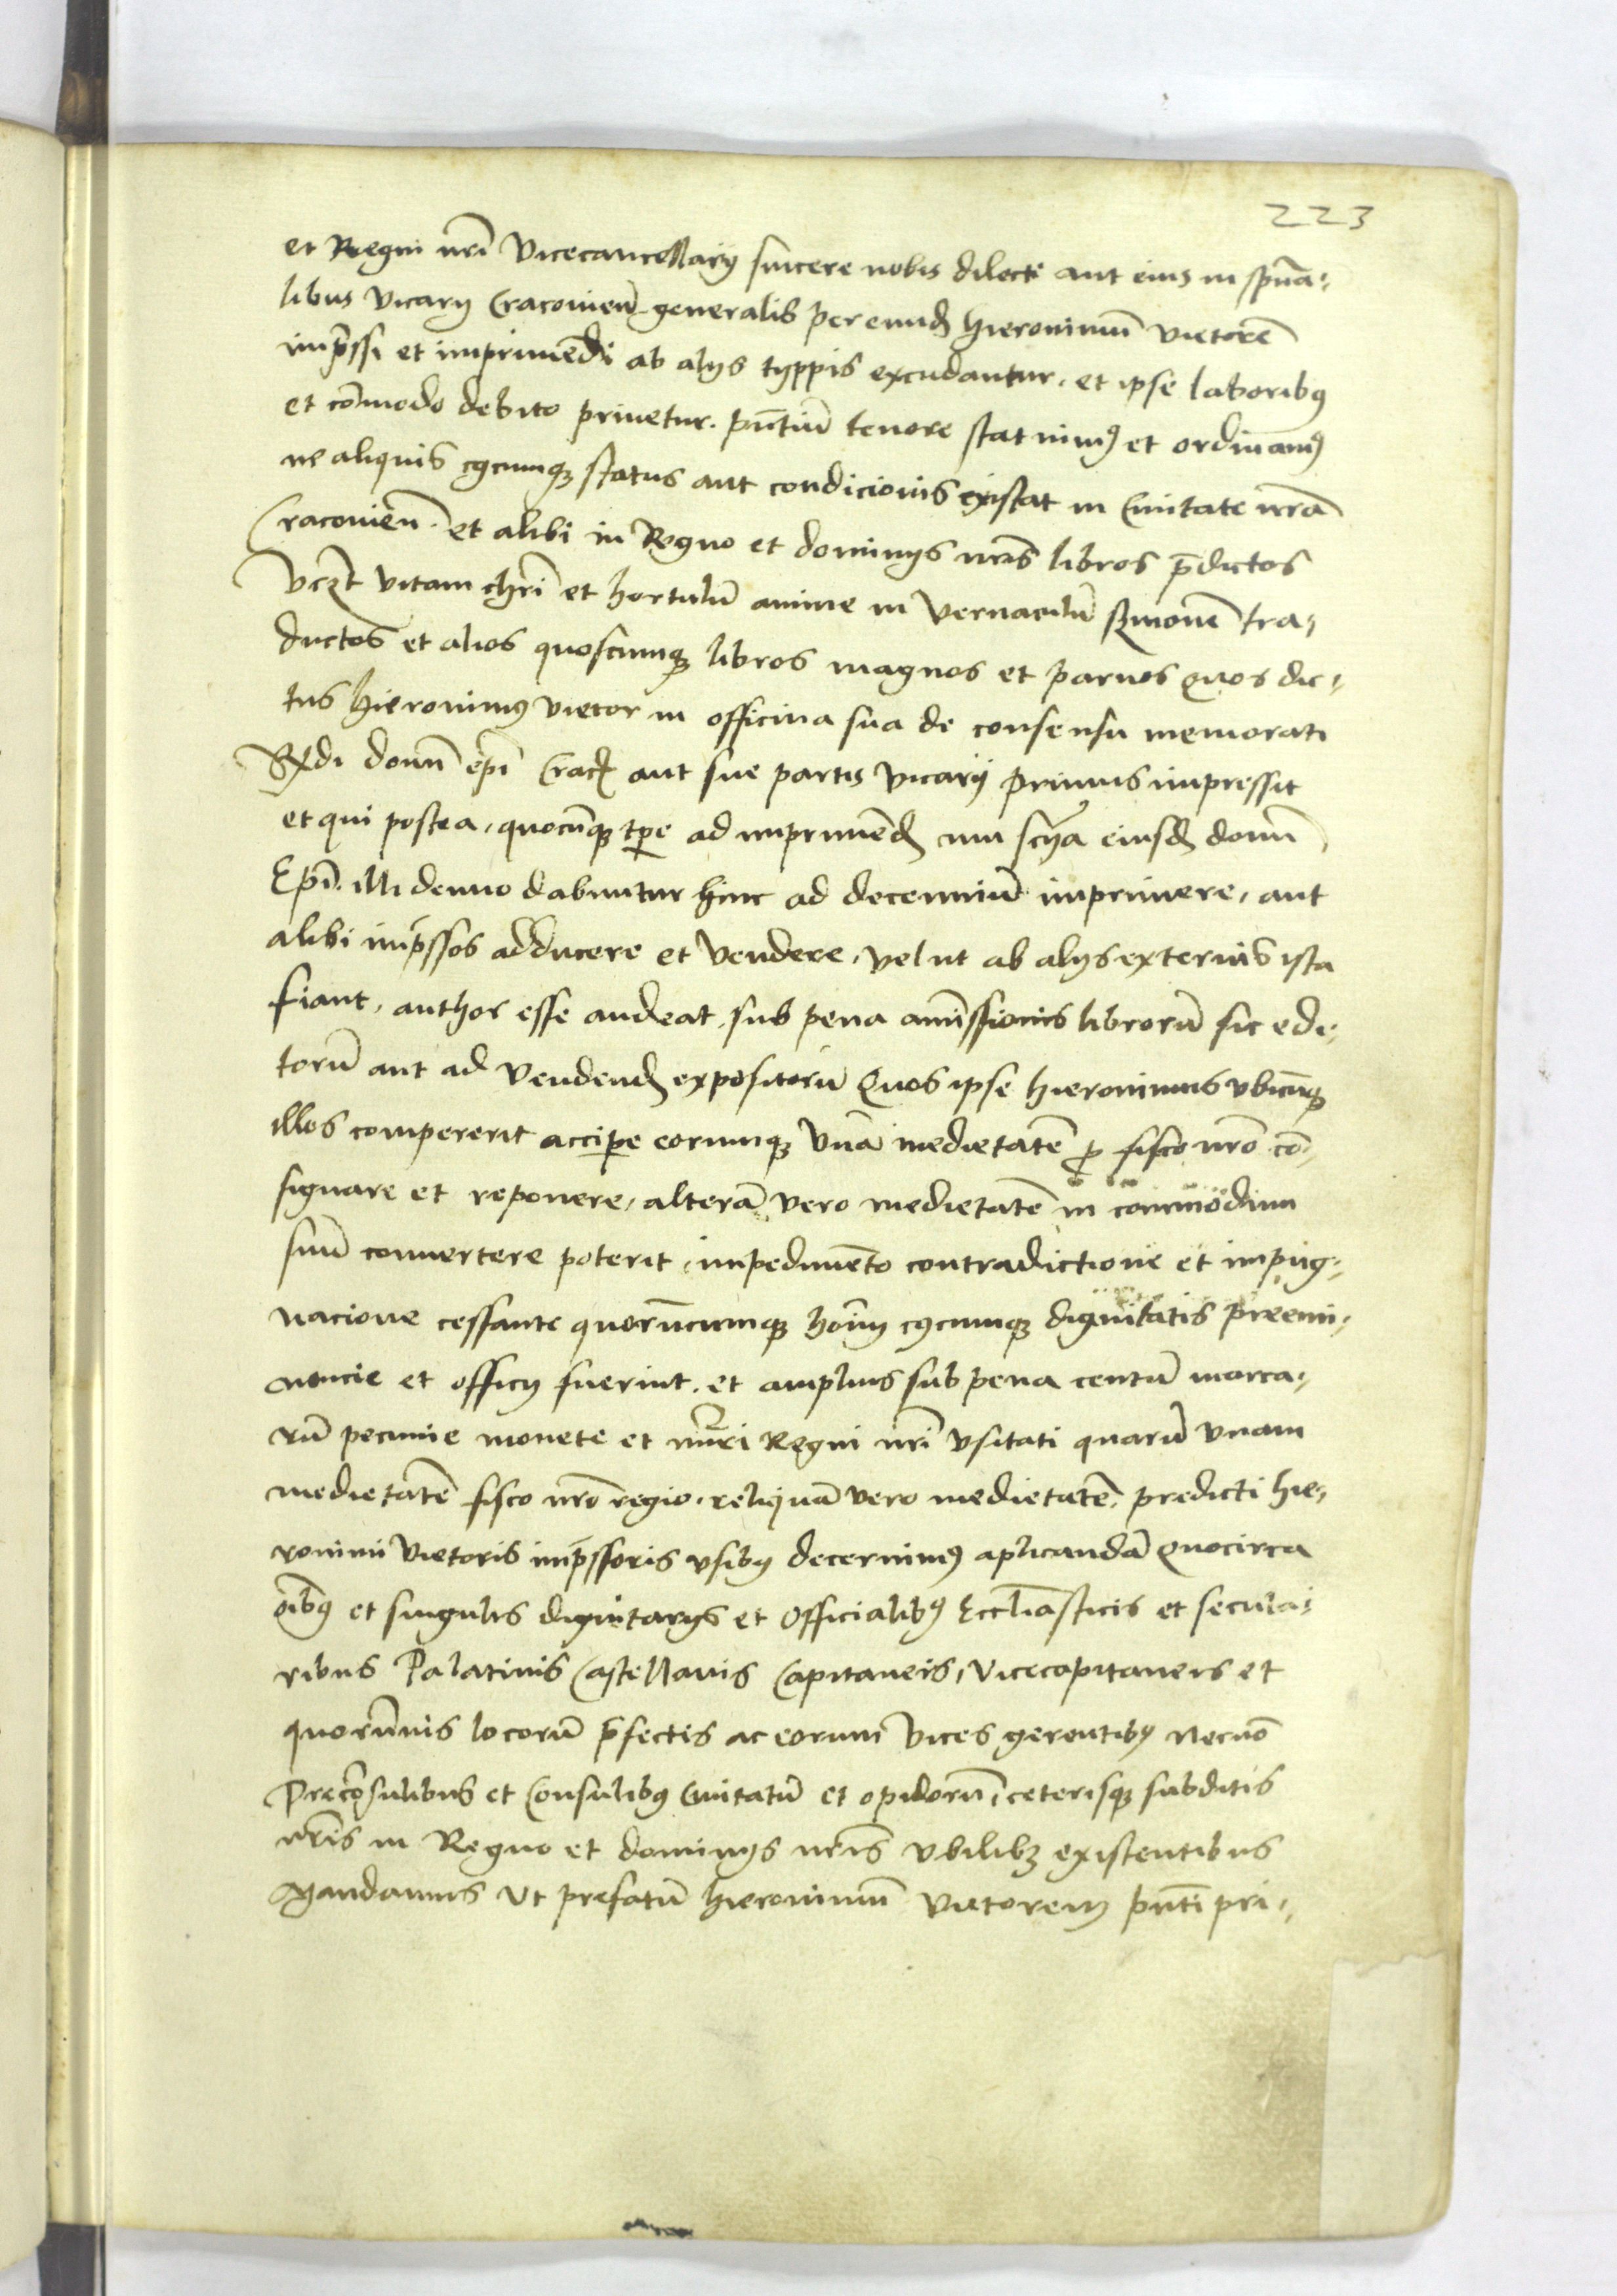 223
et Regni nrĩ Vicecancellarÿ sincere nobis dilecti aut eius in spũa-
libus vicarÿ Cracovieñ generalis per eund hieronimũ vietorẽ
imp̃ssi et imprimẽdi ab alÿs typpis excudantur, et ipse laboribꝰ
et cõmodo debito privetur. pñtiũ tenore statuimꝰ et ordinamꝰ
ne aliquis cꝰcumqꝫ status aut condicionis existat in Civitate nrã
Cracovieñ. et alibi in Regno et dominÿs nrĩs libros p̃dictos
Vczt vitam chrĩ et hortulũ anime in vernaculũ s̃monẽ tra-
ductos et alios quoscumqꝫ libros magnos et parvos quos dic-
tus hieronimꝰ vietor in officina sua de consensu memorati
Rx̃di domĩ ep̃i Crac̃ aut sue partis vicarij primus impressit
et qui postea, quocũqꝫ tp̃e ad imprimẽd̃ cum scÿã eiusd̃ domĩ
Ep̃i. illi denuo dabuntur hinc ad decenniũ imprimere, aut
alibi imp̃ssos adducere et vendere, vel ut ab alÿs externis ista
fiant, author esse audeat, sub pena amissionis librorũ sic edi-
torũ aut ad vendend̃ expositorũ Quos ipse hieronimus vbicũqꝫ
illos compererit accipe eorumqꝫ vnã medietatẽ ꝓ fisco nrõ cõ-
signare et reponere, alterã vero medietatẽ in commodum
suũ convertere poterit, impedimẽto contradictione et impug-
nacione cessante quorũcumqꝫ hoĩm cꝰcumqꝫ dignitatis preemi-
nencie et officÿ fuerint. et amplius sub pena centũ marca-
rũ pecunie monete et nũri Regni nrĩ vsitati quarũ vnam
medietatẽ fisco nrõ regio. reliquã vero medietatẽ, predicti hie-
ronimi vietoris imp̃ssoris vsibꝰ decernimꝰ aplicandã Quocirca
oĩbꝰ et singulis dignitarÿs et Officialibꝰ Eccliãsticis et secula-
ribus Palatinis Castellanis Capitaneis, Vicecapitaneis et
quorũvis locorũ p̃fectis ac eorum vices gerentibꝰ Necnõ
Precõsulibus et Consulibꝰ Civitatũ et opidorũ, ceterisqꝫ subditis
nrĩs in Regno et dominÿs nrĩs vbilibꝫ existentibus
Mandamus vt prefatũ hieronimũ vietorem pñti pri-